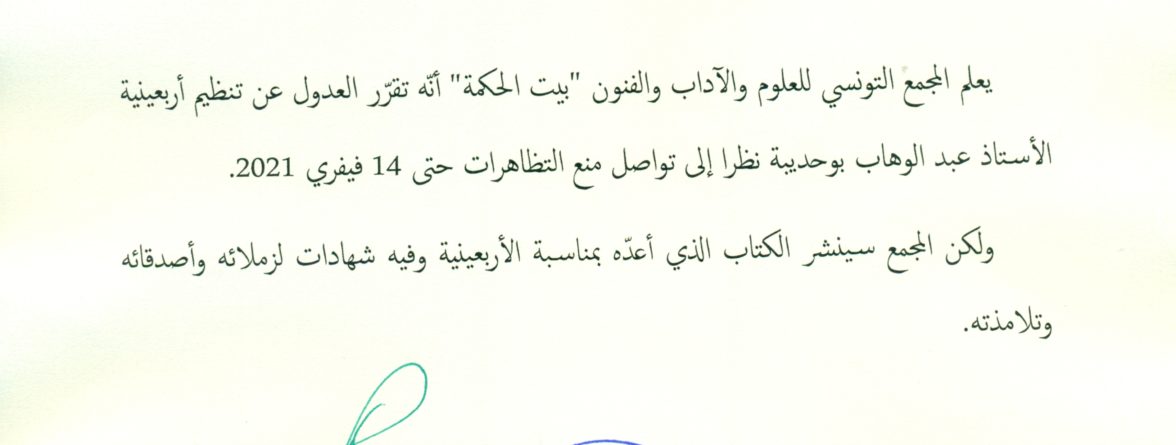 يعلم المجمع التونسي للعلوم والآداب والفنون "بيت الحكمة" أنّه تقرّر العدول عن تنظيم أربعينية
الأستاذ عبد الوهاب بوحديبة نظرا إلى تواصل منع التظاهرات حتى 14 فيفري 2021.
ولكن المجمع سينشر الكتاب الذي أعدّه بمناسبة الأربعينية وفيه شهادات لزملائه وأصدقائه
وتلامذته.